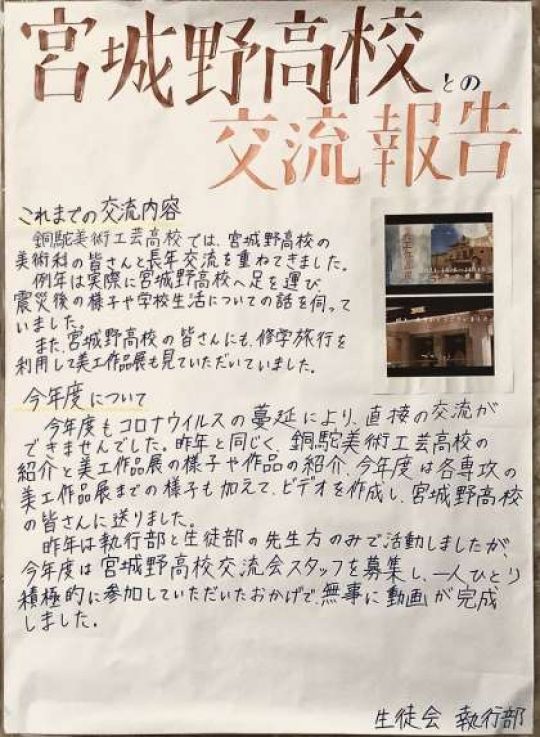 宮城野高校との
交流報告
これまでの交流内容
銅駝美術工芸高校では、宮城野高校の
美術科の皆さんと長年交流を重ねてきました。
例年は実際に宮城野高校へ足を運び、
震災後の様子や学校生活についての話を伺って
いました。
また、宮城野高校の皆さんにも、修学旅行を
利用して美工作品展も見ていただいていました。
今年度について
今年度もコロナウイルスの蔓延により、直接の交流が
できませんでした。昨年と同じく、銅駝美術工芸高校の
紹介と美工作品展の様子や作品の紹介、今年度は各専攻の
美工作品展までの様子も加えて、ビデオを作成し、宮城野高校
の皆さんに送りました。
昨年は執行部と生徒部の先生方のみで活動しましたが、
今年度は宮城野高校交流会スタッフを募集し、一人ひとり
積極的に参加していただいたおかげで、無事に動画が完成
しました。
生徒会 執行部